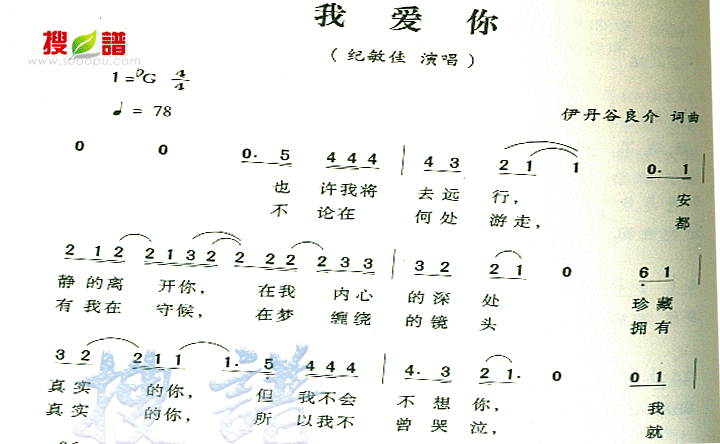 我 爱 你
搜 譜
www.sooopu.com
( 纪敏佳 演唱 )
1=♭G 4/4
♩ = 78
伊丹谷良介 词曲
0 0 0. 5 4 4 4 | 4 3 2 1 1 0. 1 |
也 许我将 去远 行, 安
不 论在 何处 游走, 都
2 1 2 2 1 3 2 2 2 2 2 3 3 | 3 2 2 1 0 6 1
静的离 开你, 在我 内心 的深 处 珍藏
有我在 守候, 在梦 缠绕 的镜 头 拥有
3 2 2 1 1 1. 5 4 4 4 | 4. 3 2 1. 0 0 1
真实 的你, 但 我不会 不 想 你, 我
真实 的你, 所 以我不 曾 哭 泣, 就
搜 譜